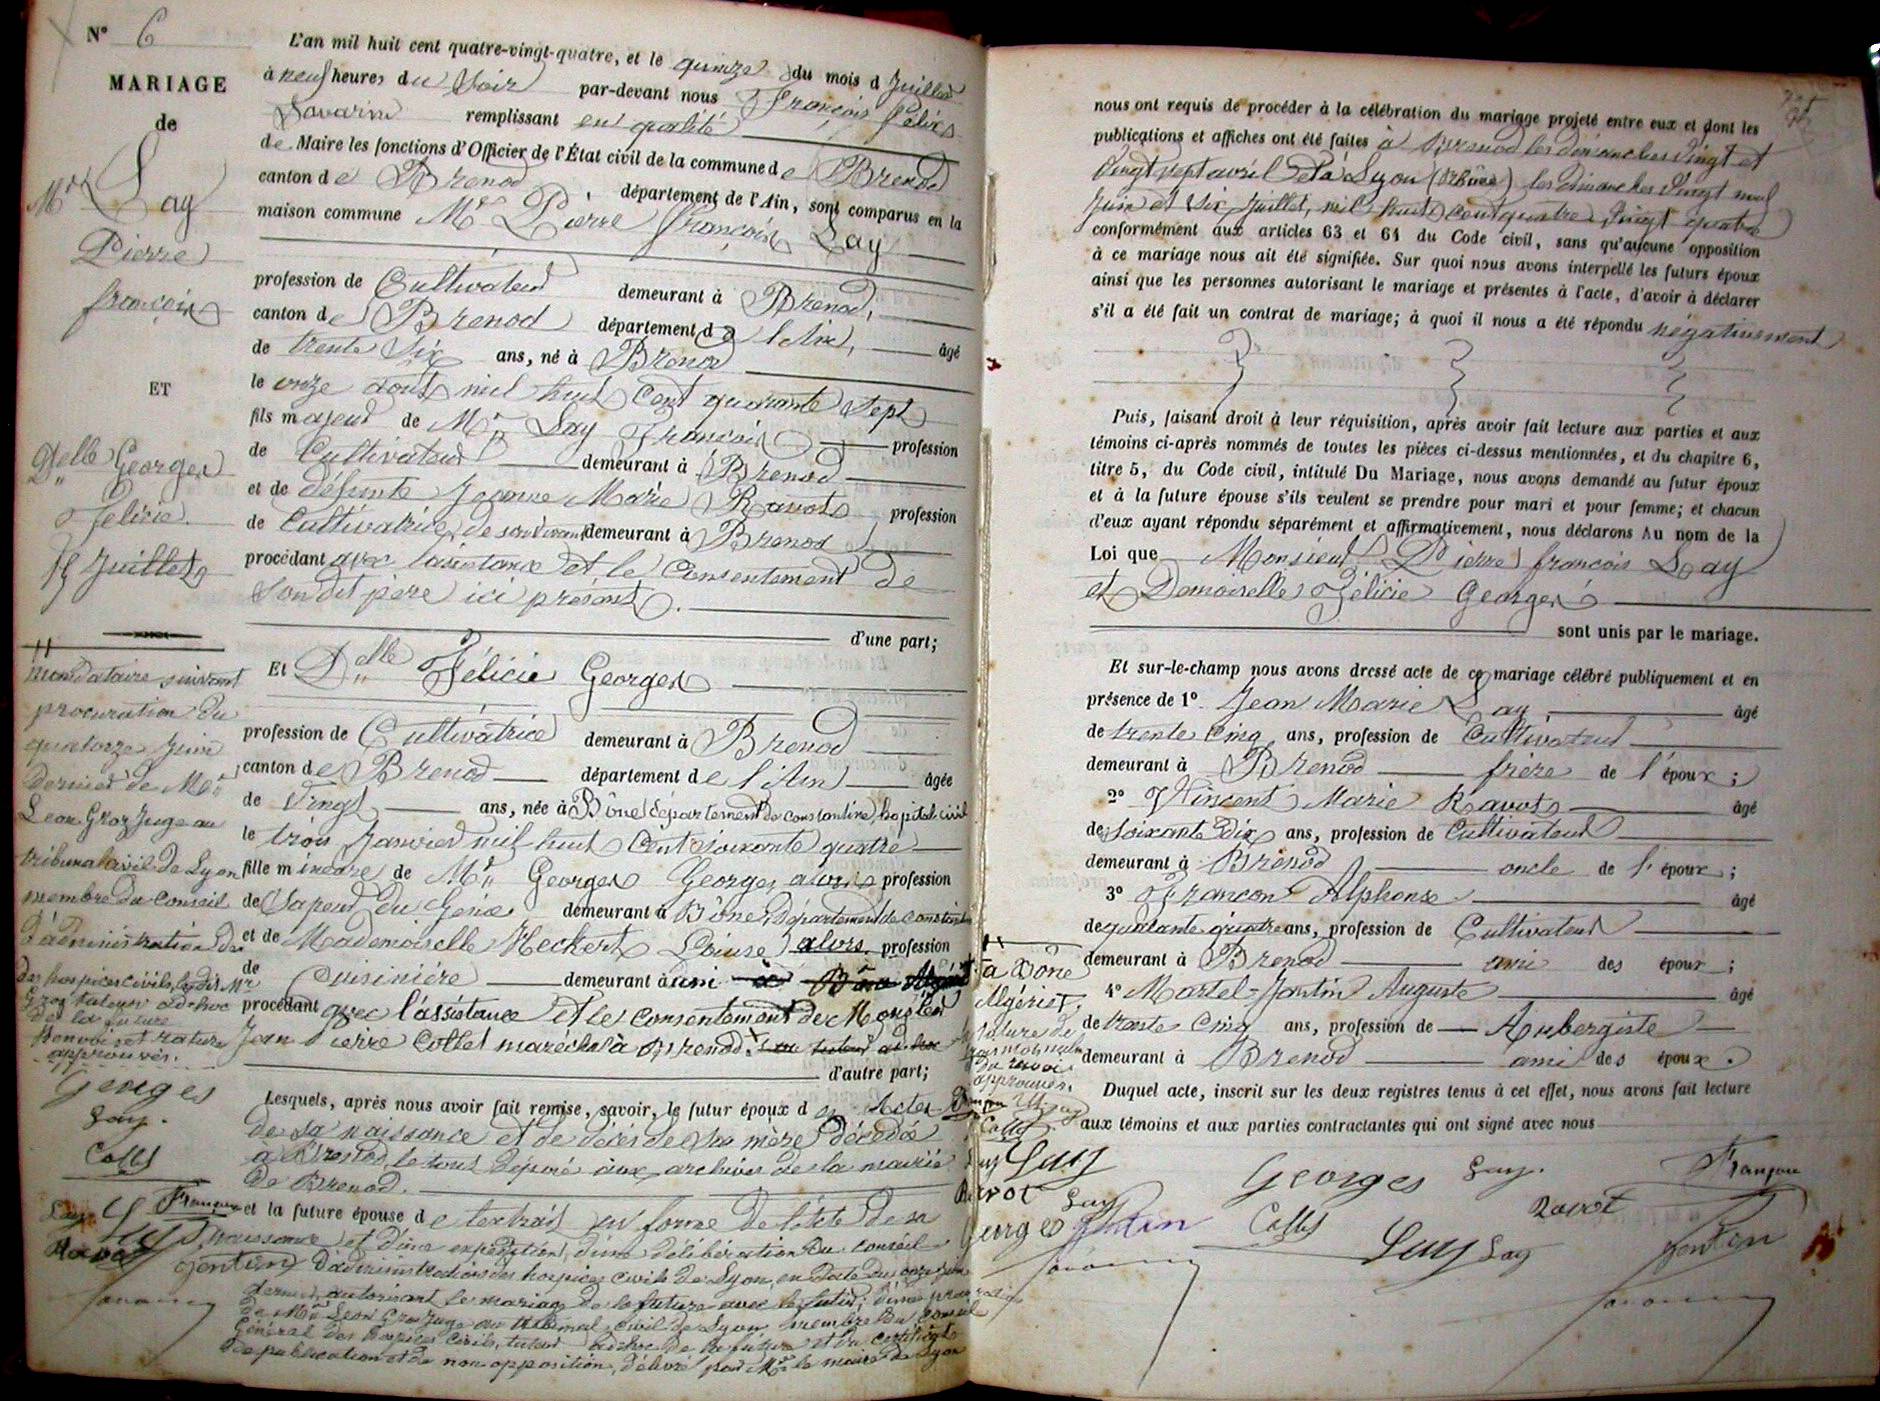 N° 6
MARIAGE
de
Mr Lay
Pierre
françois
ET
Delle Georges
Félicie.
15 Juillet
L'an mil huit cent quatre-vingt-quatre, et le quinze du mois d Juillet
à neuf heures du Soir par-devant nous François Félix
Savarin remplissant en qualité
de Maire les fonctions d'Officier de l'État civil de la commune de Brenod
canton de Brenod département de l'Ain, sont comparus en la
maison commune Mr Pierre françois Lay
profession de Cultivateur demeurant à Brenod,
canton de Brenod département de l'Ain, âgé
de trente Six ans, né à Brenod
le onze aout mil huit Cent quarante Sept
fils majeur de Mr Lay François profession
de Cultivateur demeurant à Brenod
et de défunte Jeanne Marie Ravot profession
de Cultivatrice, de son vivant demeurant à Brenod
procédant avec l'assistance et le Consentement de
Son dit père ici présent.
d'une part;
Et Delle Félicie Georges
profession de Cultivatrice demeurant à Brenod
canton de Brenod département de l'Ain âgée
de Vingt ans, née à Bône département de constantine, hopital civil
le trois Janvier mil huit Cent soixante quatre
fille mineure de Mr Georges Georges alors profession
de Sapeur du Génie demeurant à Bône, Département de Constantine
et de Mademoiselle Heckert Louise alors profession
de Cuisinière demeurant à
procédant avec l'assistance et le Consentement de Monsieur
Jean Pierre Collet maréchal à Brenod.
d'autre part;
mandataire suivant
procuration du
quatorze Juin
dernier de Mr
Léon Groz Juge au
tribunal civil de Lyon
membre du Conseil
d'administration des
des hospices civils, le dit Mr
Groz tuteur ad hoc
de la future
Renvoi et rature
approuvés.
Georges
Lay.
Collet
Lesquels, après nous avoir fait remise, savoir, le futur époux d es Actes
de sa naissance et de décès de Sa mère décédée
à Brenod, le tout déposé aux archives de la mairie
de Brenod.
et la future épouse de l'extrait en forme de l'acte de sa
naissance et d'une expédition d'une délibération du Conseil
d'administration des hospices civils de Lyon, en date du onze Juin
dernier, autorisant le mariage de la future avec le futur, d'une procuration
de Mr Léon Groz Juge au tribunal civil de Lyon, membre du Conseil
Général des hospices Civils, tuteur ad hoc de la future et du certificat
de publication et de non opposition, délivré par Mr le maire de Lyon
à Bône
Algérie.
Rature de
renvoi
approuvés.
nous ont requis de procéder à la célébration du mariage projeté entre eux et dont les
publications et affiches ont été faites à Brenod les dimanches Vingt et
Vingt sept avril et à Lyon (Rhône) les dimanches Vingt neuf
Juin et Six Juillet, mil huit cent quatre Vingt quatre
conformément aux articles 63 et 64 du Code civil, sans qu'aucune opposition
à ce mariage nous ait été signifiée. Sur quoi nous avons interpellé les futurs époux
ainsi que les personnes autorisant le mariage et présentes à l'acte, d'avoir à déclarer
s'il a été fait un contrat de mariage; à quoi il nous a été répondu négativement
Puis, faisant droit à leur réquisition, après avoir fait lecture aux parties et aux
témoins ci-après nommés de toutes les pièces ci-dessus mentionnées, et du chapitre 6,
titre 5, du Code civil, intitulé Du Mariage, nous avons demandé au futur époux
et à la future épouse s'ils veulent se prendre pour mari et pour femme; et chacun
d'eux ayant répondu séparément et affirmativement, nous déclarons Au nom de la
Loi que Monsieur Pierre françois Lay
et Demoiselle Félicie Georges
sont unis par le mariage.
Et sur-le-champ nous avons dressé acte de ce mariage célébré publiquement et en
présence de 1° Jean Marie Lay, âgé
de trente Cinq ans, profession de Cultivateur
demeurant à Brenod frère de l'époux;
2° Vincent Marie Ravot âgé
de Soixante dix ans, profession de Cultivateur
demeurant à Brenod oncle de l'époux;
3° Françon Alphonse âgé
de quarante quatre ans, profession de Cultivateur
demeurant à Brenod ami des époux;
4° Martel-Jantin Auguste âgé
de trente Cinq ans, profession de Aubergiste
demeurant à Brenod ami des époux.
Duquel acte, inscrit sur les deux registres tenus à cet effet, nous avons fait lecture
aux témoins et aux parties contractantes qui ont signé avec nous
Georges Lay. Françon
Collet Ravot
Lay Jentin